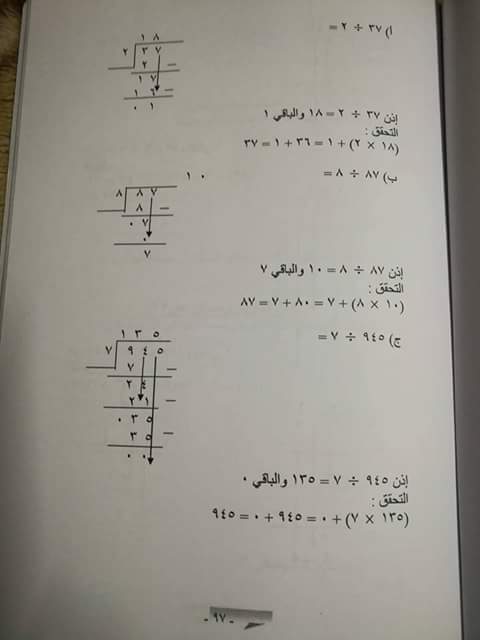 أ) ٣٧ ÷ ٢ =
١ ٨
٢ ٣ ٧
٢ –
١ ٧
١ ٦ –
٠ ١
إذن ٣٧ ÷ ٢ = ١٨ والباقي ١
التحقق :
(١٨ × ٢) + ١ = ٣٦ + ١ = ٣٧
ب) ٨٧ ÷ ٨ =
١ ٠
٨ ٨ ٧
٨ –
٠ ٧
٠
٧
إذن ٨٧ ÷ ٨ = ١٠ والباقي ٧
التحقق :
(١٠ × ٨) + ٧ = ٨٠ + ٧ = ٨٧
ج) ٩٤٥ ÷ ٧ =
١ ٣ ٥
٧ ٩ ٤ ٥
٧ –
٢ ٤
٢ ١ –
٠ ٣ ٥
٣ ٥ –
٠ ٠
إذن ٩٤٥ ÷ ٧ = ١٣٥ والباقي ٠
التحقق :
(١٣٥ × ٧) + ٠ = ٩٤٥ + ٠ = ٩٤٥
- ٩٧ -